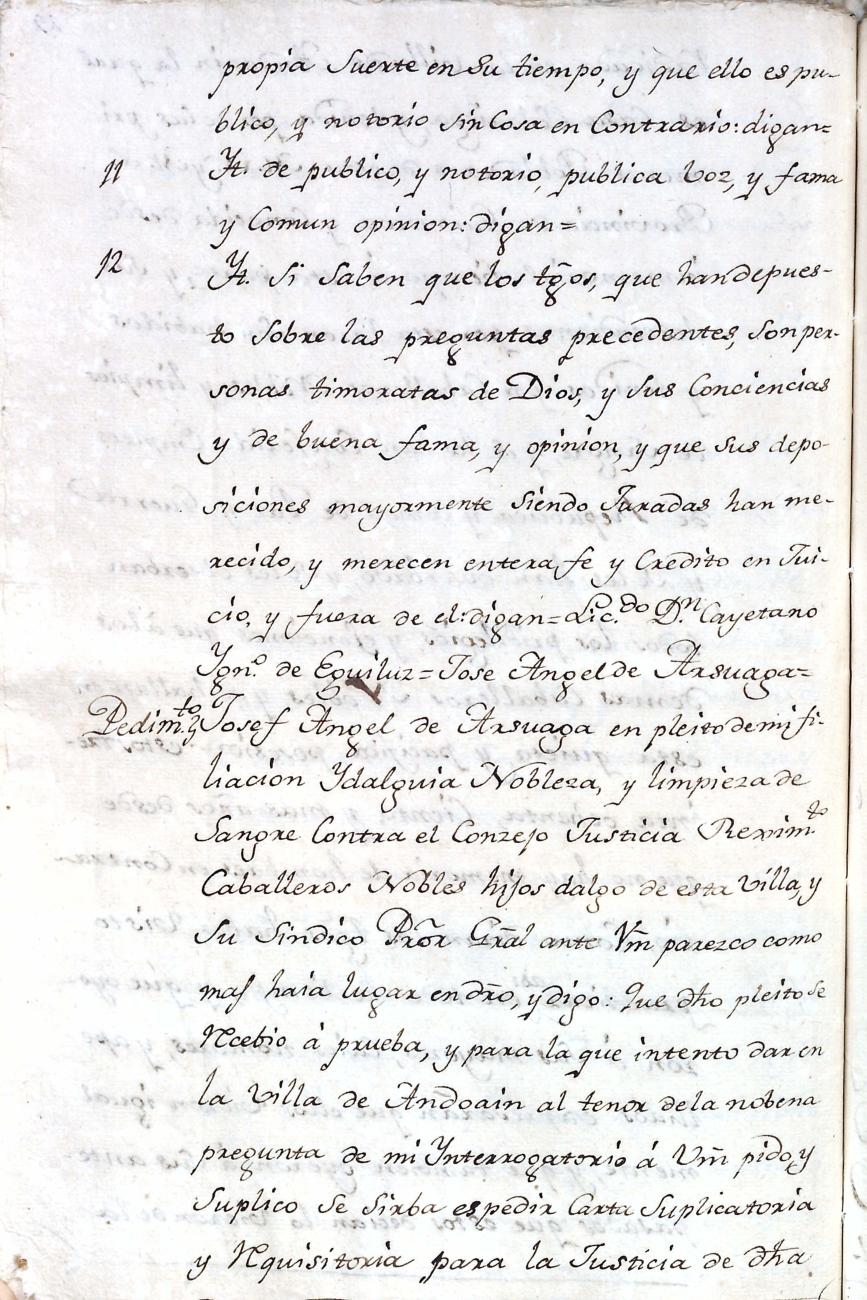 propia Suerte en Su tiempo, y que ello es pu-
blico, y notorio sin Cosa en Contrario: digan=
11 Yt. de publico, y notorio, publica Voz, y fama
y Comun opinion: digan=
12 Yt. Si Saben que los tg̃os, que han depues-
to Sobre las preguntas precedentes, Son per-
sonas timoratas de Dios, y sus Conciencias
y de buena fama, y opinion, y que sus depo-
siciones mayormente Siendo Juradas han me-
recido, y merecen entera fe y Credito en Jui-
cio, y fuera de el: digan= Lic.do D.n Cayetano
Ygn.o de Eguiluz= Jose Angel de Arsuaga=
Pedim.to Josef Angel de Arsuaga en pleito de mi fi-
liacion Ydalguia Nobleza, y limpieza de
Sangre Contra el Conzejo Justicia Rexim.to
Caballeros Nobles hijos dalgo de esta Villa, y
Su Sindico Pror̃ Gr̃al ante Vm̃ parezco como
mas haia lugar en dr̃o, y digo: Que dh̃o pleito se
Rcebio á prueba, y para la que intento dar en
la Villa de Andoain al tenor de la nobena
pregunta de mi Ynterrogatorio á Vm̃ pido, y
Suplico Se Sirba espedir Carta Suplicatoria
y Rquisitoria para la Justicia de dh̃a